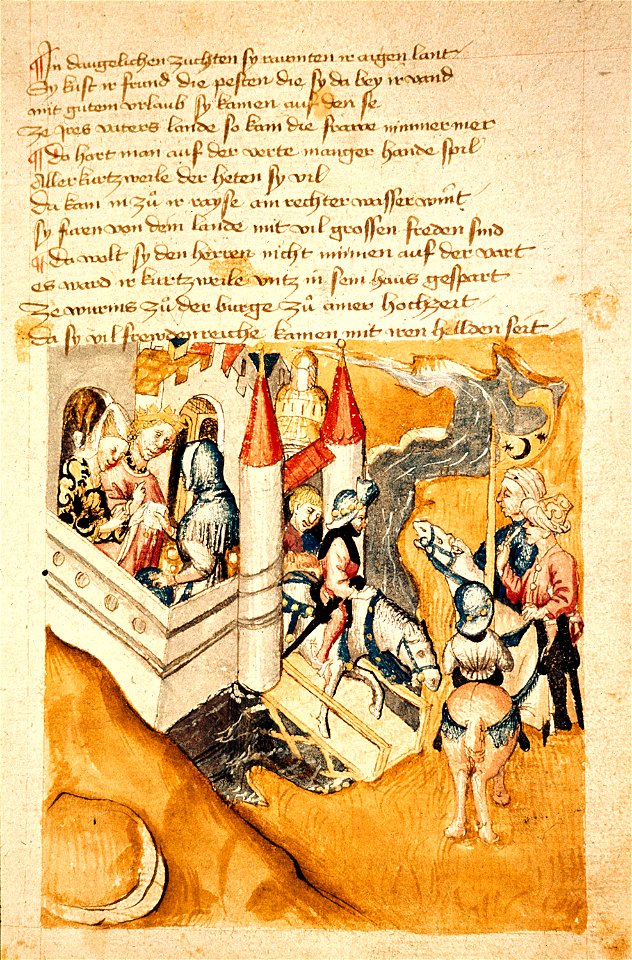 In daugelichen zuchten sy raumten ir aigen lant
Sy kust ir frund die pesten die sy da bey ir vand
mit gutem vrlaub sy kamen auf den se
Ze jres vaters lande so kam die frawe nimmer mer
Do hort man auf der verte manger hande spil
Aller kurtzweile der heten sy vil
Da kam in zů ir rayse ain rechter wasser wint
sy furen von dem lande mit vil grossen freden sind
da wolt sy den herren nicht minnen auf der vart
es ward ir kurtzweile vntz in sein haus gespart
Ze wurms zů der burge zů ainer hochzeit
Da sy vil frewdenreiche kamen mit iren hellden seit